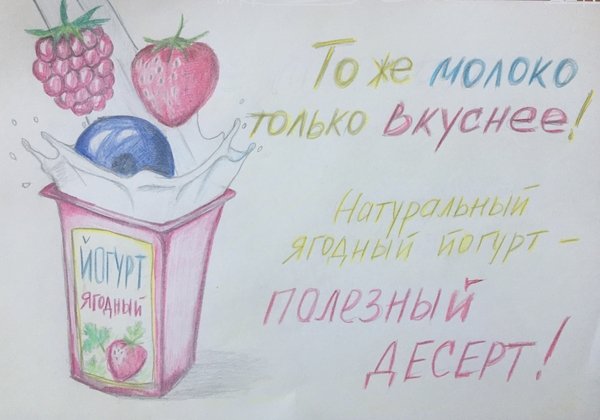 То же молоко
только вкуснее!
Натуральный
ягодный йогурт –
полезный
десерт!
йогурт
ягодный